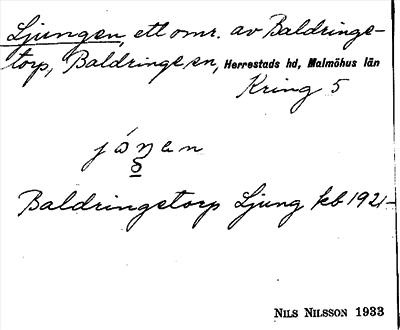 Ljungen, ett omr. av Baldrings-
torp, Baldringe sn, Herrestads hd, Malmöhus län
Kring 5
Baldringstorp Ljung kb 1921-
NILS NILSSON 1933